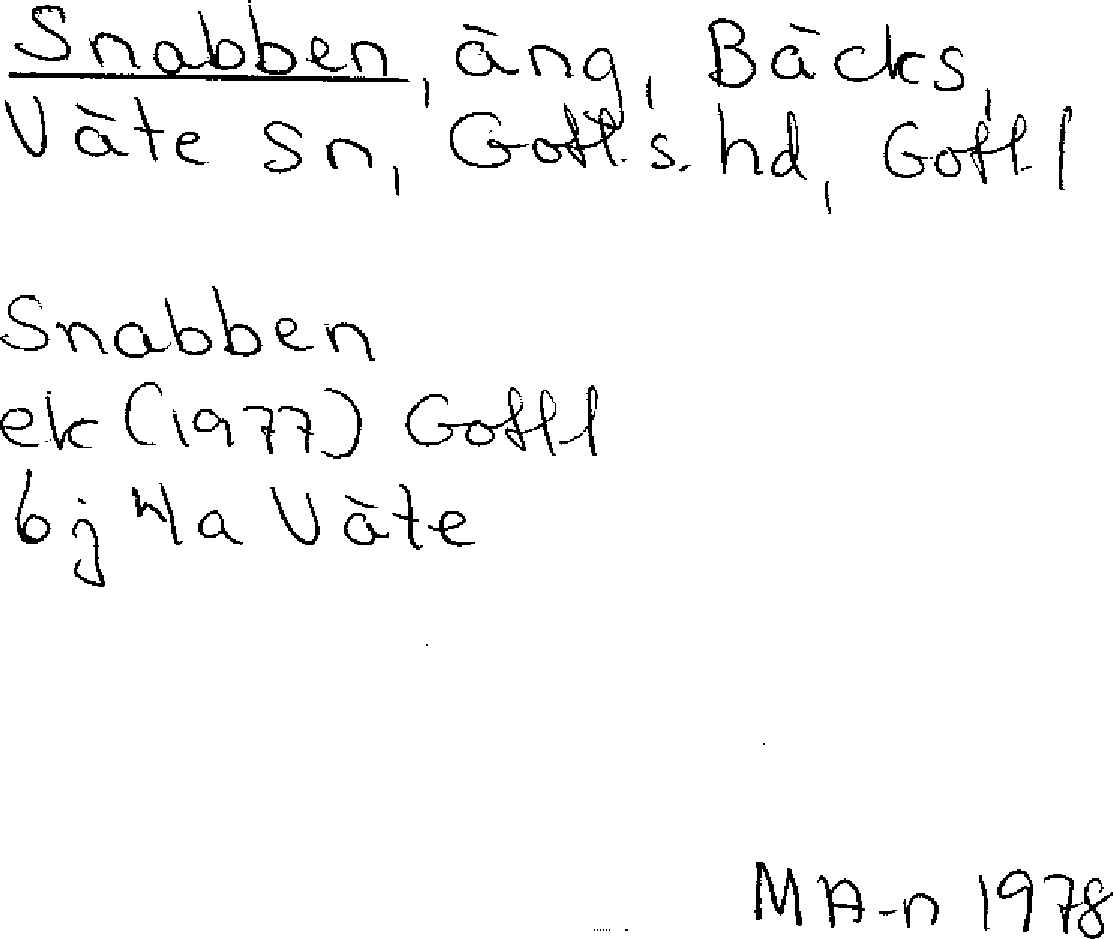 Snabben, äng, Bäcks,
Väte sn, Gotl. s. hd, Gotl. l
Snabben
ek (1977) Gotl l
bj 4a Väte
MA-n 1978